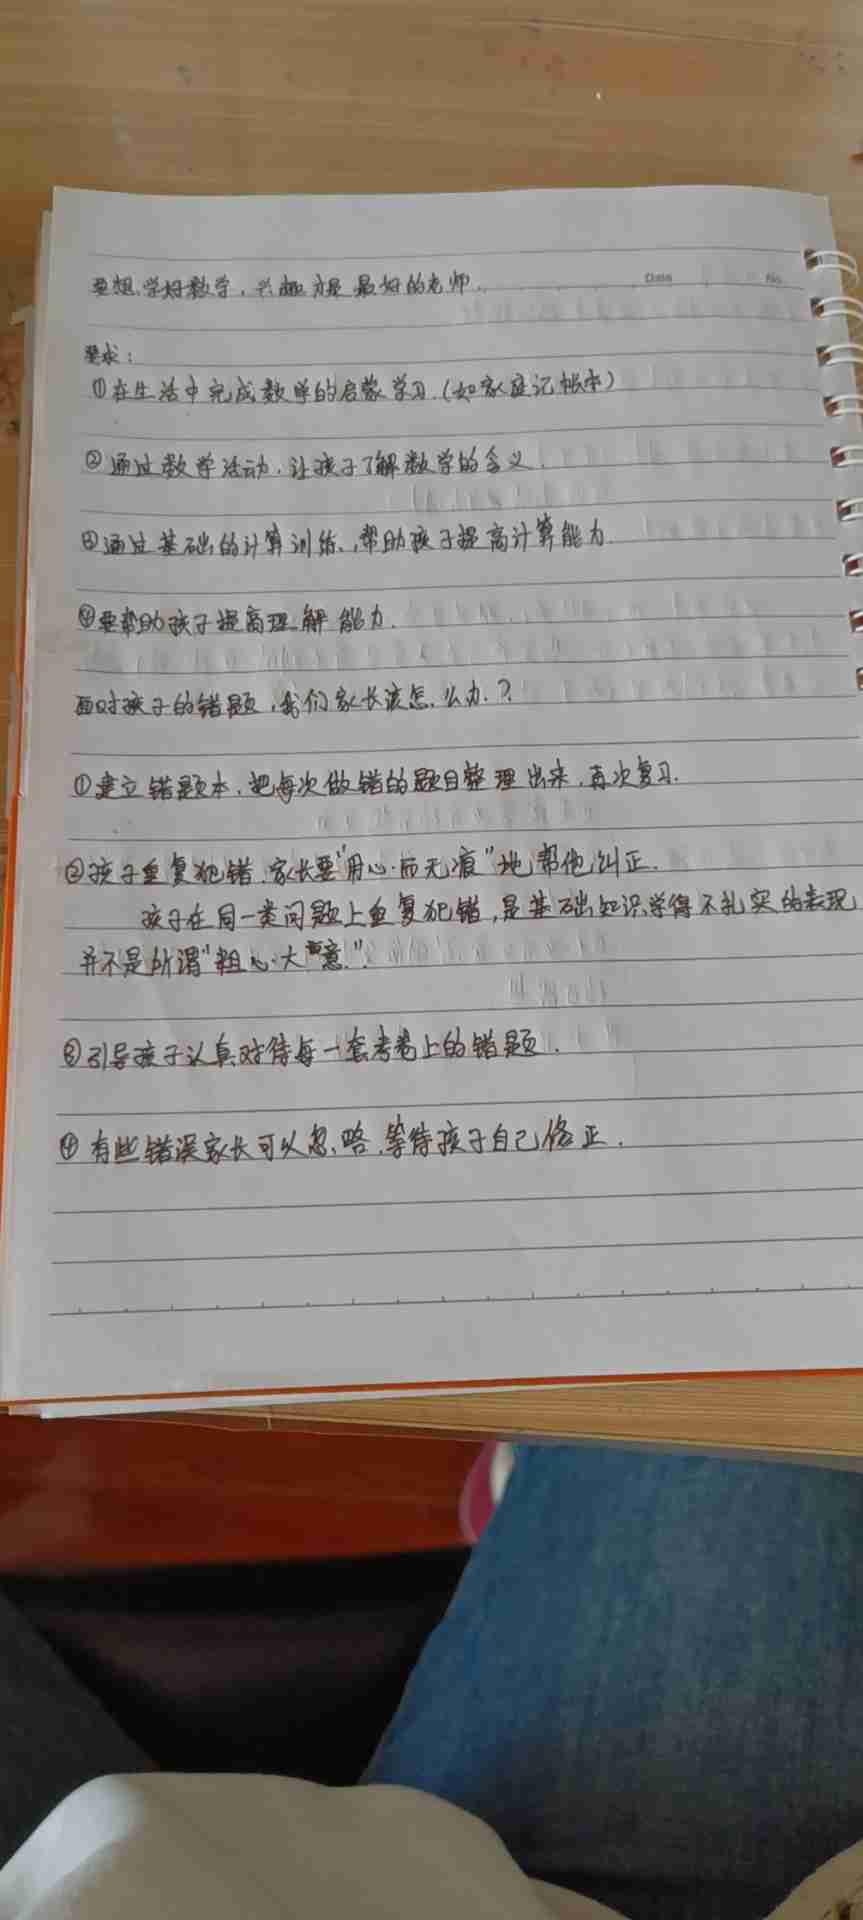 Date No.
要想学好数学，兴趣才是最好的老师．
要求：
①在生活中完成数学的启蒙学习．（如家庭记帐本）
②通过数学活动，让孩子了解数学的含义．
③通过基础的计算训练，帮助孩子提高计算能力．
④要帮助孩子提高理解能力．
面对孩子的错题，我们家长该怎么办．？
①建立错题本，把每次做错的题目整理出来，再次复习．
②孩子重复犯错，家长要“用心而无痕”地帮他纠正．
孩子在同一类问题上重复犯错，是基础知识学得不扎实的表现，
并不是所谓“粗心大意．”．
③引导孩子认真对待每一套考卷上的错题．
④有些错误家长可以忽略，等待孩子自己修正．